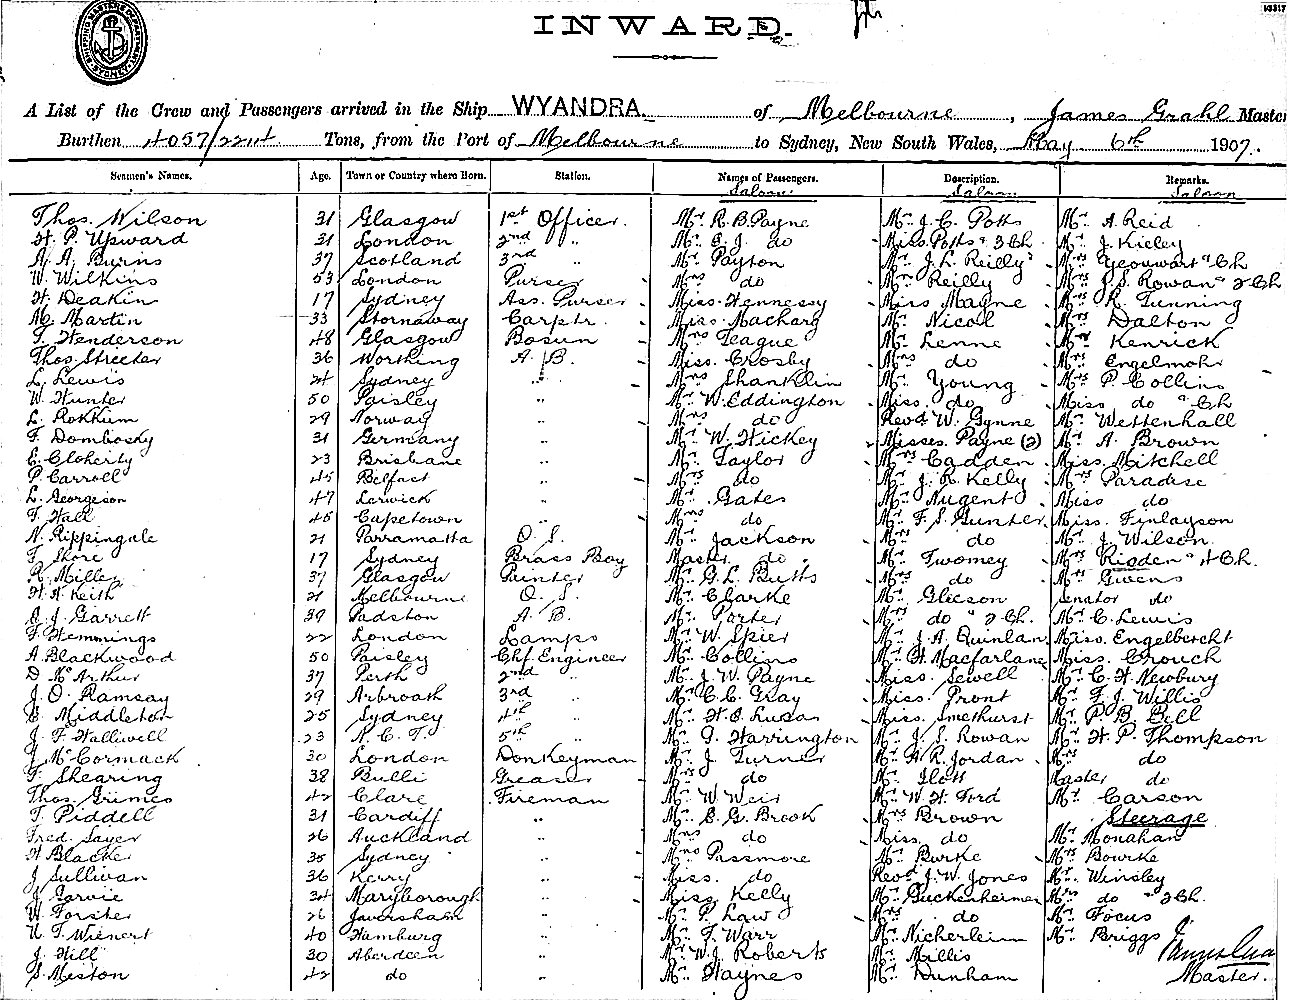 INWARD.
A List of the Crew and Passengers arrived in the Ship WYANDRA of Melbourne, James Grahl Master
Burthen 4057/2241 Tons, from the Port of Melbourne to Sydney, New South Wales, May 6th 1907.
Seamen's Names. Age. Town or Country where Born. Station. Names of Passengers. Description. Remarks.
Saloon. Saloon. Saloon
Thos. Wilson 31 Glasgow 1st Officer. Mr. R. B. Payne Mr. J. C. Potts Mr. A. Reid
H. P. Upward 31 London 2nd " Mr. E. J. do Miss. Potts & 3 Ch. Mr. J. Kieley
A. A. Burns 37 Scotland 3rd " Mr. Payton Mr. J. L. Reilly Mrs. Yeouwart & Ch
W. Wilkins 53 London Purser Mrs. do Mrs. Reilly Mrs. P. S. Rowan & 2 Ch
H. Deakin 17 Sydney Ass. Purser Miss. Hennessy Miss Mayne Mrs. R. Gunning
M. Martin 33 Stornaway Carptr. Miss. Macharg Mr. Nicol Mrs. Dalton
T. Henderson 48 Glasgow Bosun Mrs. Teague Mr. Lenne Mr. Kenrick
Thos. Streeter 36 Worthing A. B. Miss. Crosby Mrs. do Mrs. Engelmohr
L. Lewis 24 Sydney " Mrs. Shanklin Mr. Young Mrs. P. Collins
W. Hunter 50 Paisley " Mr. W. Eddington Miss. do Miss do & Ch
L. Rokkum 29 Norway " Mrs. do Revd. W. Gynne Mr. Wettenhall
F. Dombosky 31 Germany " Mr. W. Hickey Misses. Payne (2) Mr. A. Brown
E. Cloherty 23 Brisbane " Mr. Taylor Mrs. Cadden Miss. Mitchell
P. Carroll 45 Belfast " Mrs. do Mr. J. R. Kelly Mrs. Paradise
L. Georgeson 47 Lerwick " Mr. Gates Mr. Nugent Miss do
T. Hall 45 Capetown " Mrs. do Mr. F. S. Gunter Miss. Finlayson
N. Rippingale 21 Parramatta O. S. Mr. Jackson Mrs. do Mr. J. Wilson
F. Shore 17 Sydney Brass Boy Master do Mr. Twomey Mrs. Rigden & 4 Ch.
R. Miller 37 Glasgow Punter Mr. G. L. Butts Mrs. do Mrs. Givens
H. A. Keith 21 Melbourne O. S. Mr. Clarke Mr. Gleeson Senator do
A. J. Garrett 39 Padston A. B. Mr. Porter Mrs. do & 2 Ch. Mr. C. Lewis
F. Hemmings 22 London Lamps Mr. W. Spier Mr. J. A. Quinlan Miss. Engelbercht
A. Blackwood 50 Paisley Chf. Engineer Mr. Collins Mr. H. Macfarlane Miss. Crouch
D. McArthur 37 Perth 2nd " Mr. J. W. Payne Miss. Sewell Mr. C. H. Newbury
J. O. Ramsay 29 Arbroath 3rd " Mr. C. C. Gray Miss. Pront Mr. F. J. Willis
E. Middleton 25 Sydney 4th " Mr. H. E. Lucas Miss. Smethurst Mr. P. B. Bell
J. F. Halliwell 23 5th " Mr. T. Harrington Mr. J. S. Rowan Mr. H. P. Thompson
J. McCormack 30 London Donkeyman Mr. J. Turner Mr. H. R. Jordan Mrs. do
F. Shearing 38 Bulli Greaser Mrs. do Mr. Ilott Master do
Thos. Grimes 42 Clare Fireman Mr. W. Weir Mr. W. H. Ford Mr. Carson
T. Piddell 31 Cardiff " Mr. E. G. Brook Mrs. Brown Steerage
Fred. Sayer 26 Auckland " Mrs. do Miss. do Mr. Monahan
H. Blacker 35 Sydney " Mrs. Passmore Mr. Burke Mrs. Bourke
J. Sullivan 36 Kerry " Miss. do Revd. J. W. Jones Mr. Winsley
J. Jarvie 34 Maryborough " Miss. Kelly Mr. Buckenheimer Mrs. do & 2 Ch.
W. Forster 26 Faversham " Mr. P. Law Mrs. do Mr. Focus
U. T. Wienert 40 Hamburg " Mr. F. Warr Mr. Nicherleim Mr. Briggs
J. Hill 30 Aberdeen " Mr. W. J. Roberts Mr. Millis
S. Meston 42 do " Mr. Haynes Mr. Dunham Master.